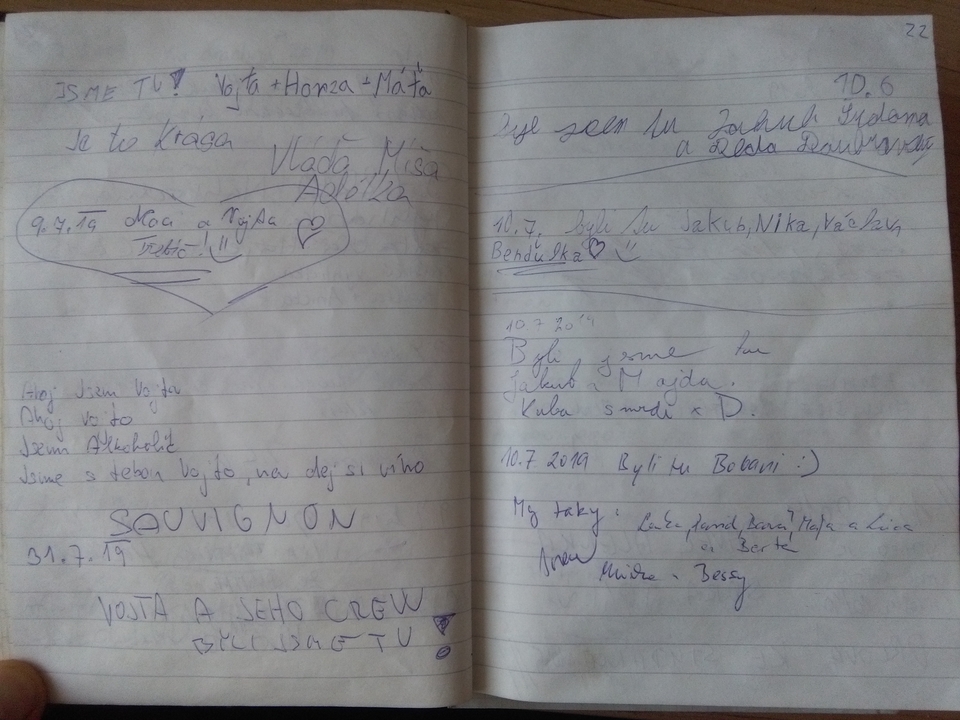 JSME TU! Vojta + Honza + Máťa
Je to krása
Vláďa Míša
Adélka
9.7.19 a Vojta
Ahoj jsem Vojta
Ahoj Vojto
Jsem Alkoholič
Jsme s tebou Vojto, na dej si víno
SAUVIGNON
31.7.19
VOJTA A JEHO CREW
BYLI JSME TU!
22
10.6
jsem tu Jakub
a Deda
10.7. byli tu Jakub, Nika, Václav,
Bendulka
10.7 2019
Byli jsme tu
Jakub a Majda.
Kuba smrdí x D.
10.7 2019 Byli tu Bobani :)
My taky:
a Berta
Bessy